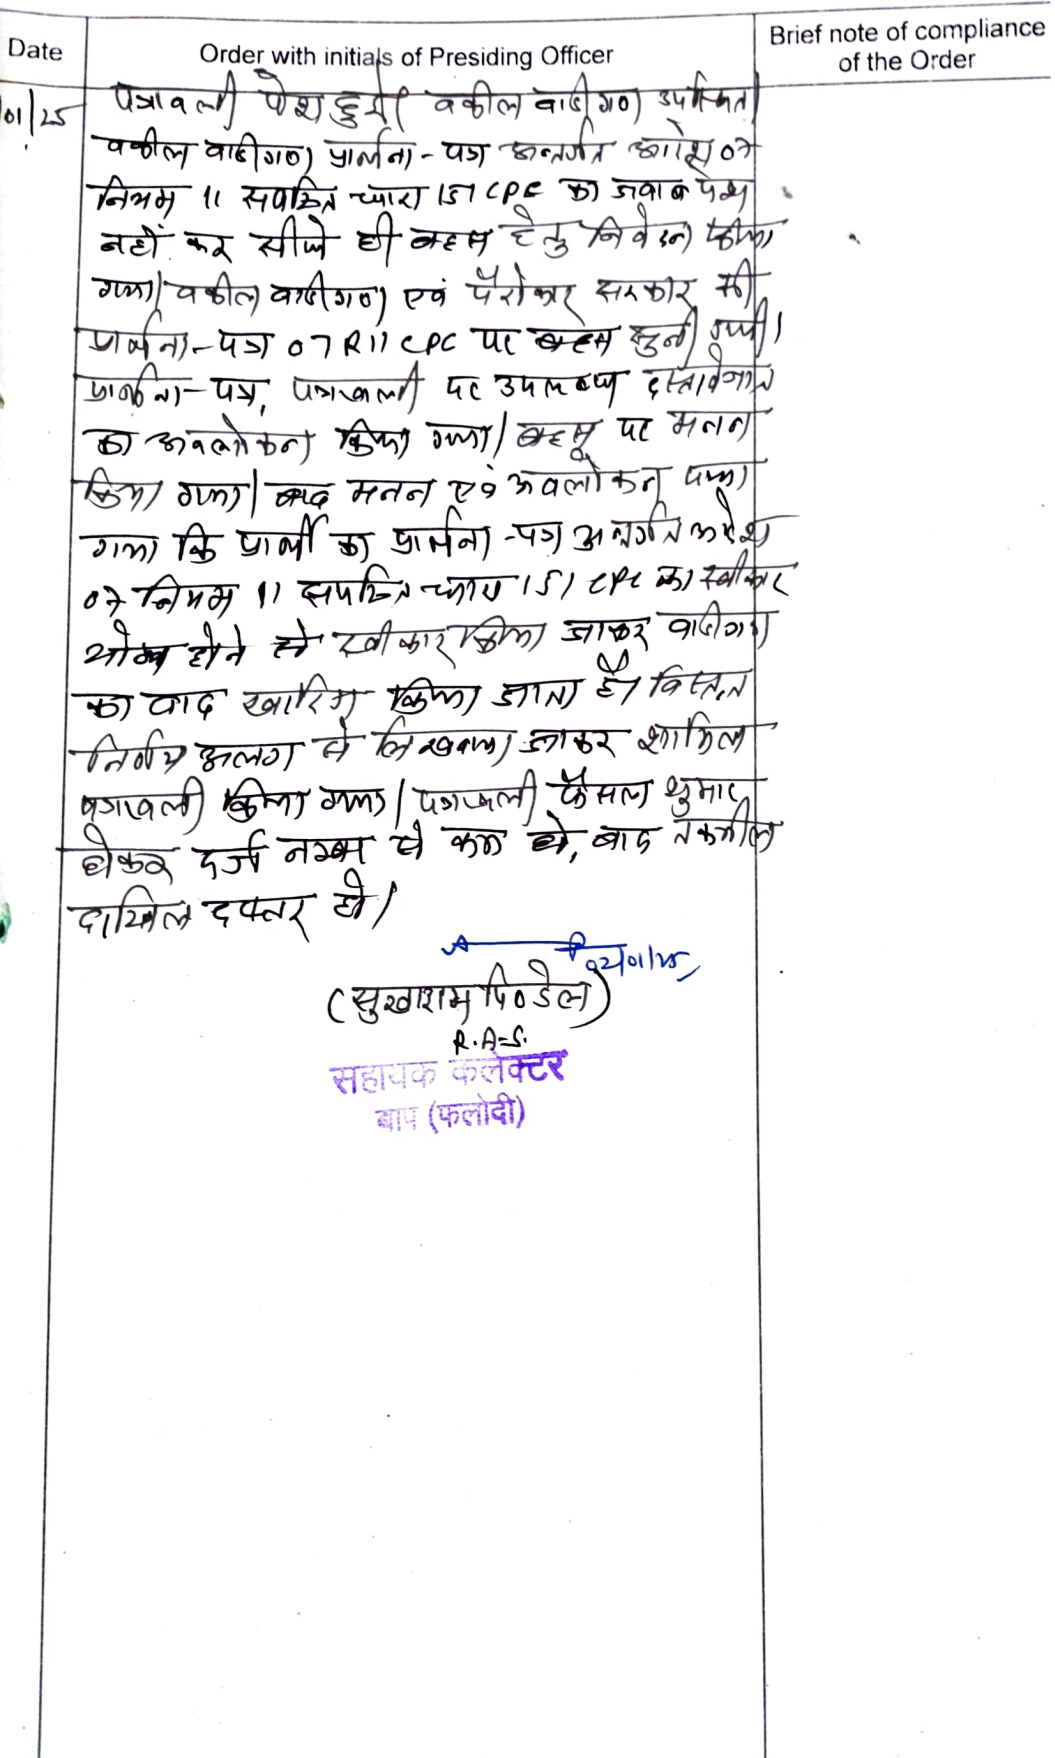 Date
Order with initials of Presiding Officer
Brief note of compliance
of the Order
01/25
पत्रावली पेश हुई। वकील वादीगण उपस्थित।
वकील वादीगण प्रार्थना-पत्र अन्तर्गत आदेश 07
नियम 11 सपठित धारा 151 CPC का जवाब पेश
नहीं कर सीधे ही बहस हेतु निवेदन किया
गया। वकील वादीगण एवं पैरोकार सरकार की
प्रार्थना-पत्र 07 R 11 CPC पर बहस सुनी गयी।
प्रार्थना-पत्र, पत्रावली पर उपलब्ध दस्तावेजात
का अवलोकन किया गया। बहस पर मनन
किया गया। बाद मनन एवं अवलोकन पाया
गया कि प्रार्थी का प्रार्थना-पत्र अन्तर्गत आदेश
07 नियम 11 सपठित धारा 151 CPC का स्वीकार
योग्य होने से स्वीकार किया जाकर वादीगण
का वाद खारिज किया जाता है। विस्तृत
निर्णय अलग से लिखवाया जाकर शामिल
पत्रावली किया गया। पत्रावली फैसल शुमार
होकर दर्ज नम्बर से कम हो, बाद तकमील
दाखिल दफ्तर हो।
(सुखाराम पिण्डेल)
R.A.S.
सहायक कलेक्टर
बाप (फलोदी)